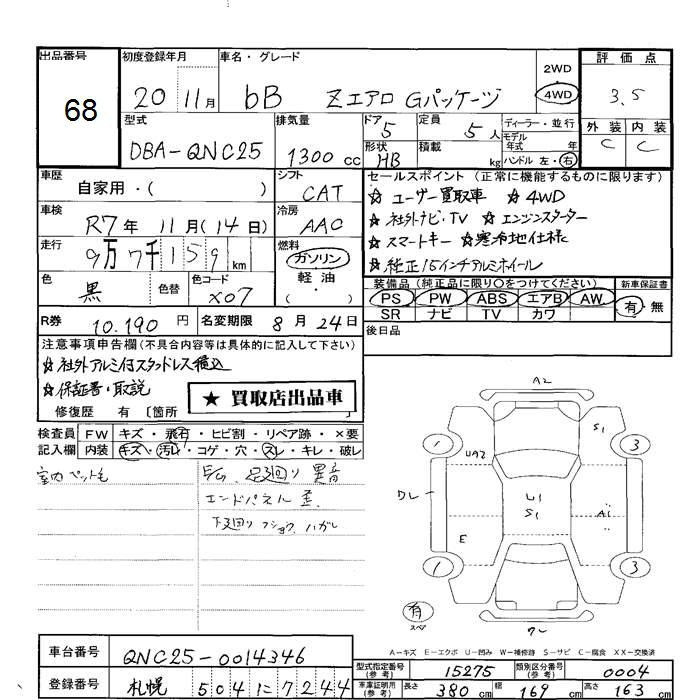 出品番号 初度登録年月 車名・グレード 2WD 4WD 評価点
68 20 11月 bB Zエアロ Gパッケージ 3.5
型式 排気量 ドア 5 定員 5人 ディーラー・並行 外装 内装
DBA-QNC25 1300cc 形状 HB 積載 kg モデル年式 年 C C
ハンドル 左・右
車歴 シフト セールスポイント (正常に機能するものに限ります)
自家用・( ) CAT ☆ユーザー買取車 ☆4WD
車検 冷房 ☆社外ナビ・TV ☆エンジンスターター
R7年 11月(14日) AAC ☆スマートキー ☆寒冷地仕様
走行 燃料 ☆純正15インチアルミホイール
9万7千159km ガソリン
軽油・( )
色 色替 色コード 装備品 (純正品に限り○をつけてください) 新車保証書
黒 X07 PS PW ABS エアB AW 有・無
SR ナビ TV カワ
R券 10.190円 名変期限 8月24日 後日品
注意事項申告欄(不具合内容等は具体的に記入して下さい)
☆社外アルミ付スタッドレス積込
☆保証書・取説
★ 買取店出品車
修復歴 有 〔箇所
検査員 FW キズ・飛石・ヒビ割・リペア跡・×要
記入欄 内装 キズ・汚レ・コゲ・穴・スレ・キレ・破レ
室内ペット毛
足廻り異音
エンドパネル歪
下廻り フショク、ハガレ
A2
1 S1 3
UA2
DL U1 A1
S1
E
1 3
有
スペア
ワレ
A-キズ E-エクボ U-凹み W-補修跡 S-サビ C-腐食 XX-交換済
車台番号 QNC25-0014346
登録番号 札幌 504 に 7244
型式指定番号(参考) 15275 類別区分番号(参考) 0004
車庫証明用(参考) 長さ 380cm 幅 169cm 高さ 163cm